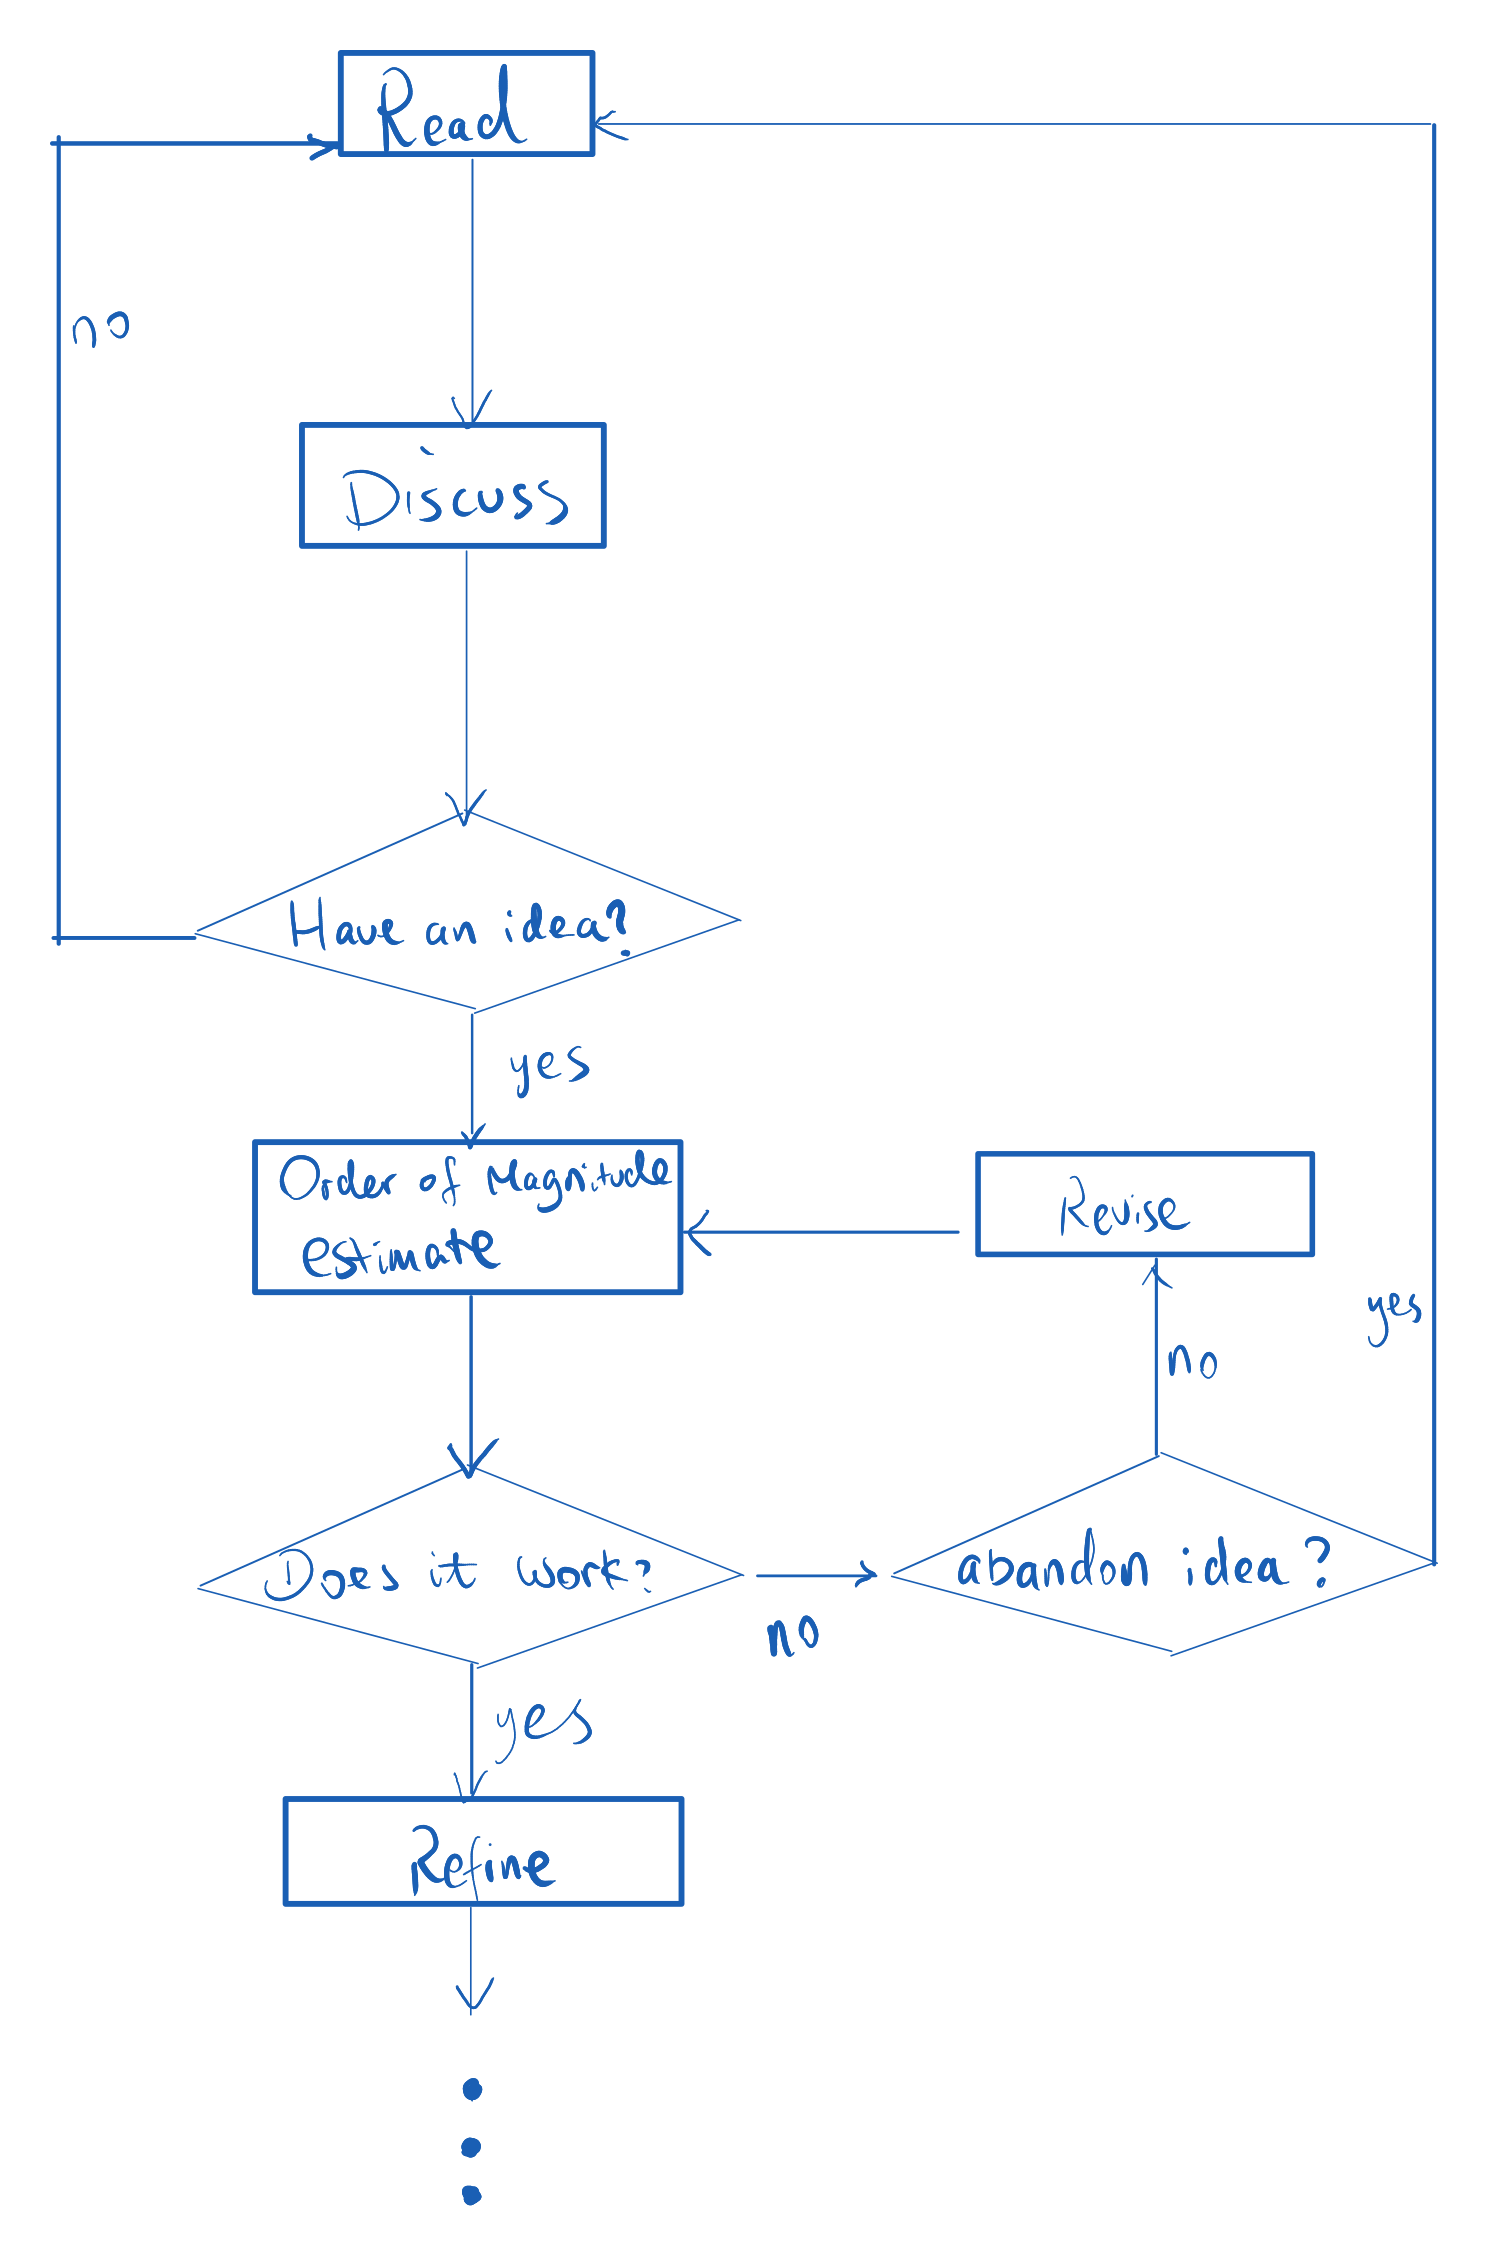 Read
no
Discuss
Have an idea?
yes
Order of Magnitude
estimate
Revise
yes
no
Does it work?
abandon idea?
no
yes
Refine